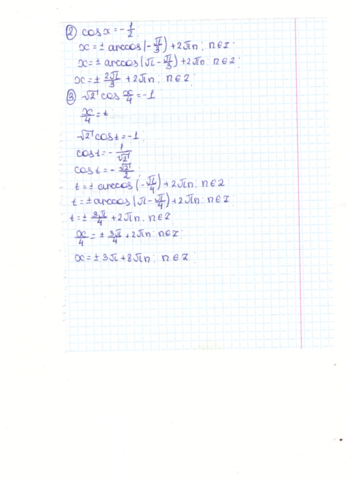 ② cos x = -1/2
x = ± arccos(-π/3) + 2πn. n∈Z
x = ± arccos(π - π/3) + 2πn. n∈Z
x = ± 2π/3 + 2πn. n∈Z
③ √2 cos x/4 = -1
x/4 = t
√2 cos t = -1
cos t = -1/√2
cos t = -√2/2
t = ± arccos(-π/4) + 2πn. n∈Z
t = ± arccos(π - π/4) + 2πn. n∈Z
t = ± 3π/4 + 2πn. n∈Z
x/4 = ± 3π/4 + 2πn. n∈Z
x = ± 3π + 8πn. n∈Z